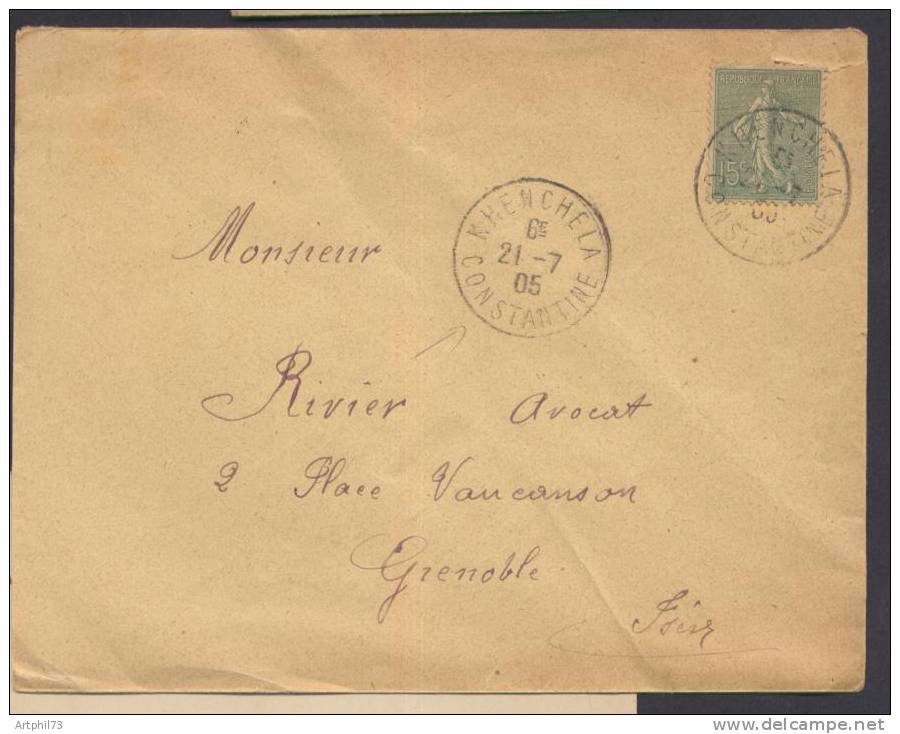 REPUBLIQUE FRANÇAISE
15c
KHENCHELA
CONSTANTINE
Monsieur
KHENCHELA
6E
21 -7
05
CONSTANTINE
Rivier Avocat
2 Place Vaucanson
Grenoble
Isère
Artphil73
www.delcampe.net